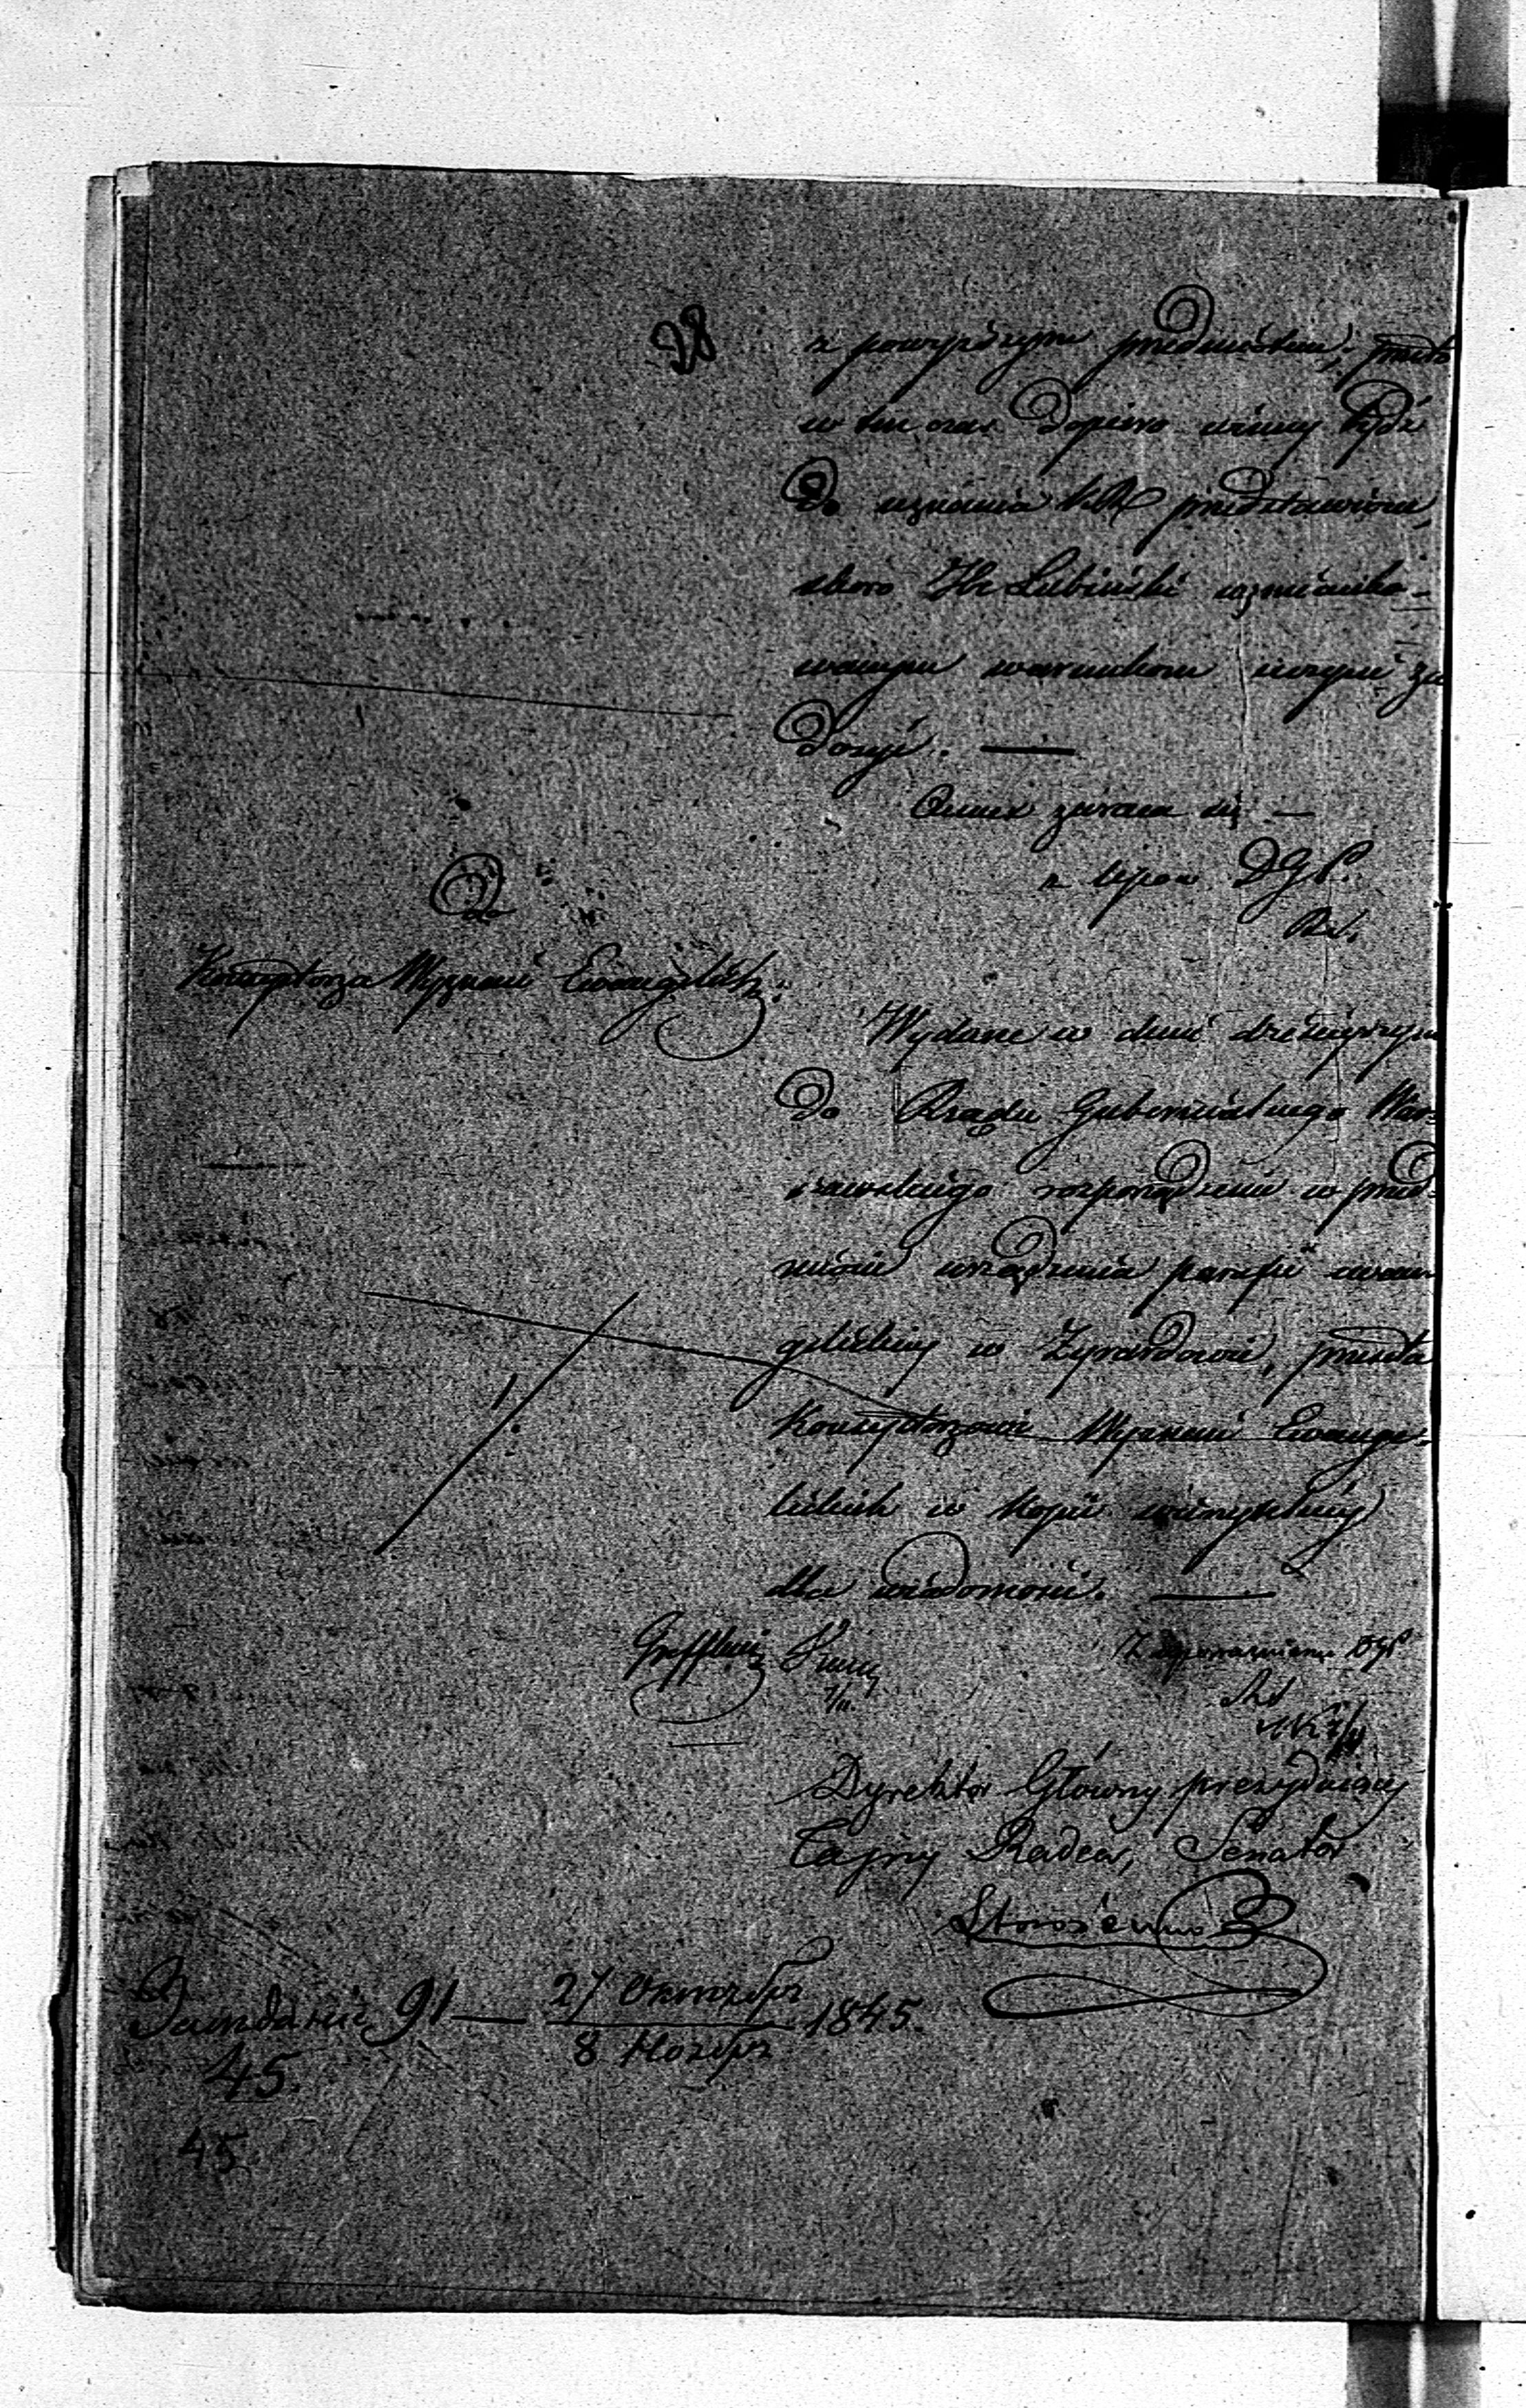 28
z powyższym przedmiotem, przeto
w ten czas dopiero winny bydź
do uznania KR przedstawione,
skoro Hr Łubiński wzmianko-
wanym warunkom uczyni za
dosyć. —
Annex zwraca się. —
z upow. DGP.
Do
Konsystorza Wyznań Ewangelick:
Wydane w dniu dzisiejszym
do Rządu Gubernialnego War-
szawskiego rozporządzenie w przed-
miocie urządzenia parafii ewan
gelickiej w Żyrardowie, przesyła
Konsystorzowi Wyznań Ewange-
lickich w kopii
dla wiadomości. —
Z upoważnienia DGP
Dyrektor Główny prezydujący
Tajny Radca, Senator
Storożenko
91 — 27 Октября
8 Ноября 1845.
45.
45